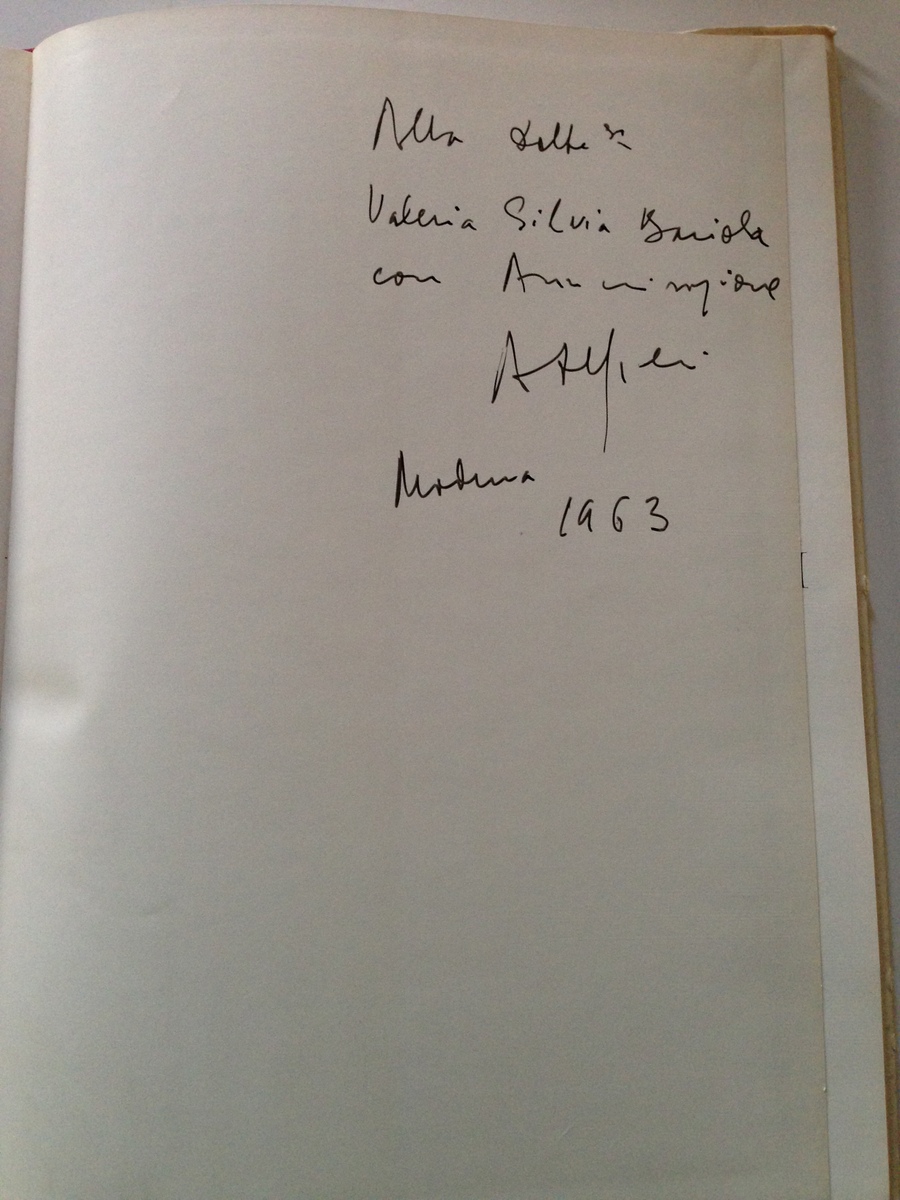 Alla Dott.ssa
Valeria Silvia Bariola
con Ammirazione
A Alfieri
Modena
1963